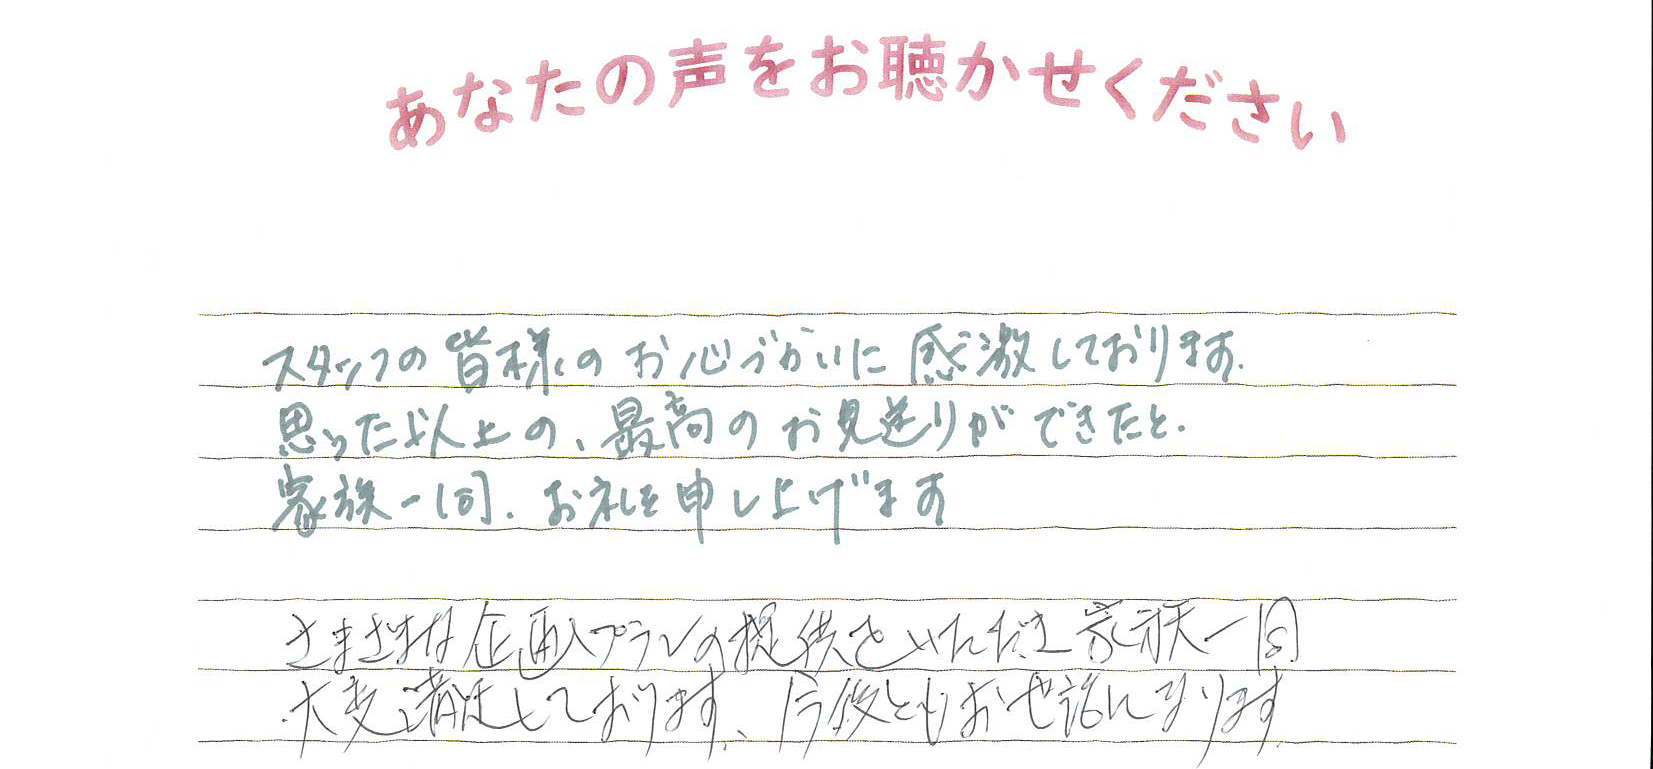 あなたの声をお聴かせください
スタッフの皆様のお心づかいに感激しております.
思った以上の、最高のお見送りができたと.
家族一同.お礼を申し上げます
さまざまな企画プランの提供をいただき家族一同
大変満足しております、今後ともお世話になります